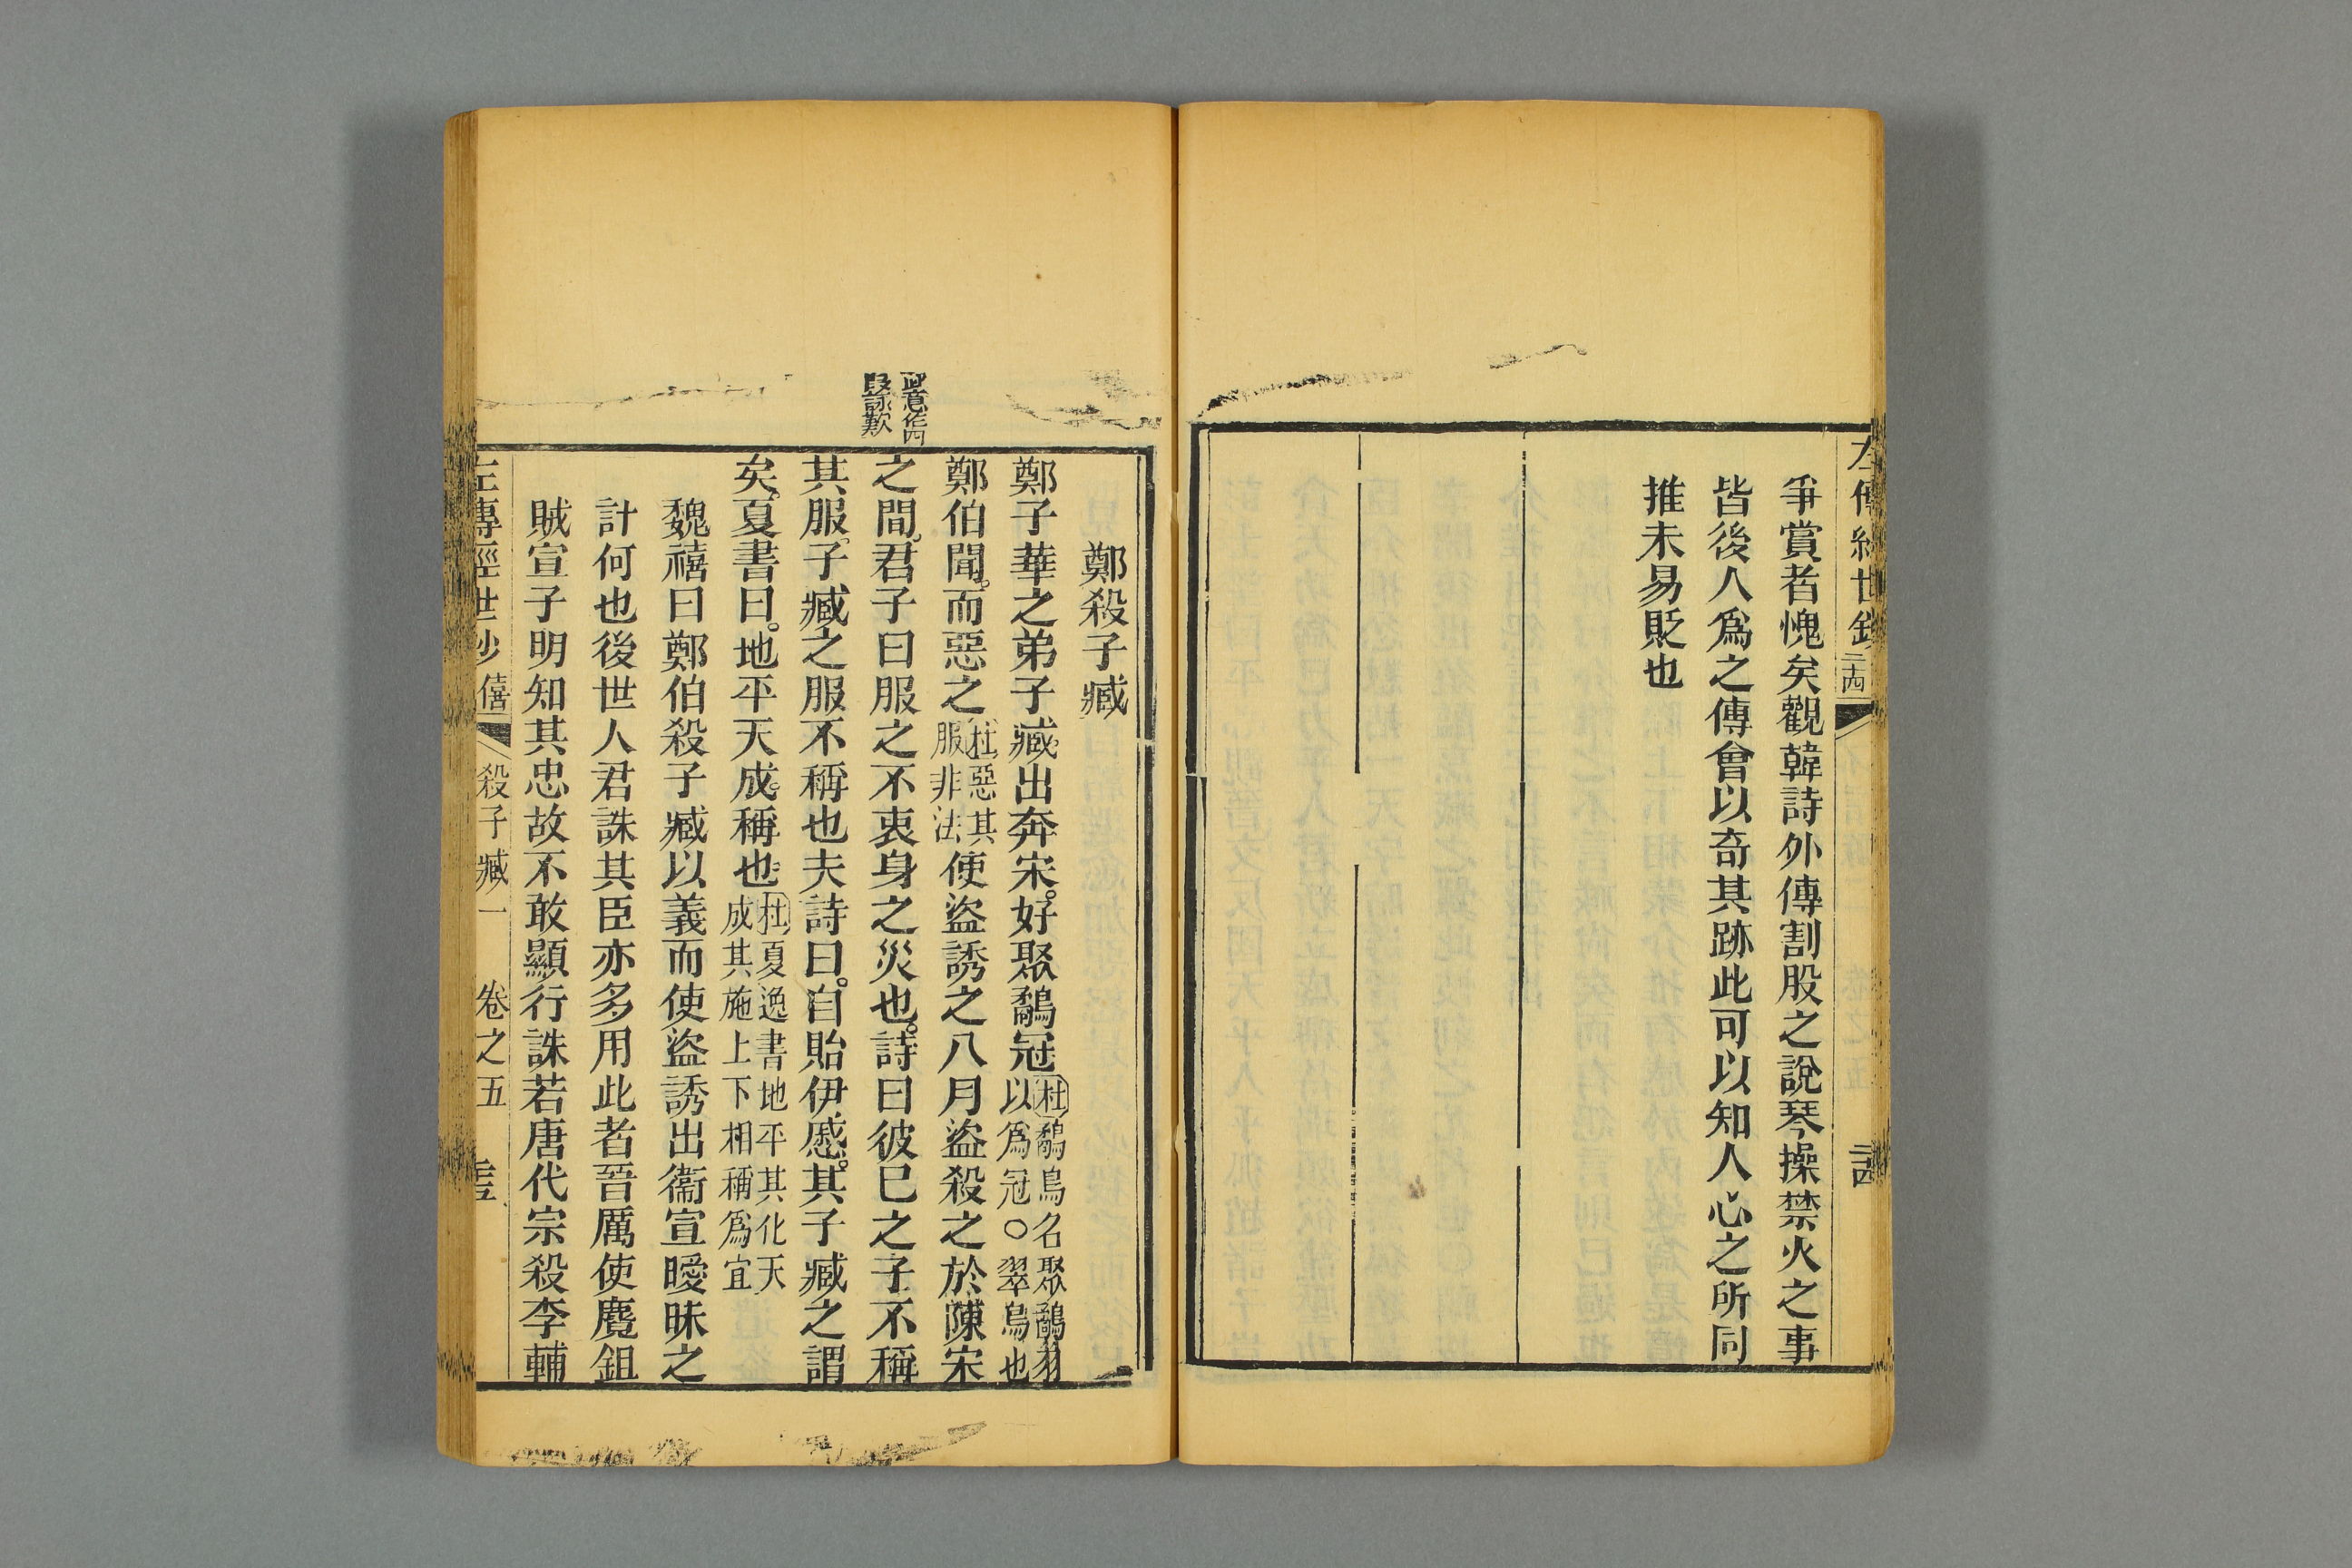 左傳經世鈔
二十四
爭賞者愧矣觀韓詩外傳割股之說琴操禁火之事
皆後人爲之傳會以奇其跡此可以知人心之所同
推未易貶也
鄭殺子臧
鄭子華之弟子臧出奔宋好聚鷸冠杜鷸鳥名聚鷸羽以爲冠○翠鳥也
鄭伯聞而惡之杜惡其服非法使盜誘之八月盜殺之於陳宋
之間君子曰服之不衷身之災也詩曰彼己之子不稱
其服子臧之服不稱也夫詩曰自貽伊慼其子臧之謂
矣夏書曰地平天成稱也杜夏逸書地平其化天成其施上下相稱爲宜
魏禧曰鄭伯殺子臧以義而使盜誘出衞宣曖昧之
計何也後世人君誅其臣亦多用此者晉厲使麑鉏
賊宣子明知其忠故不敢顯行誅若唐代宗殺李輔
左傳經世鈔 僖 殺子臧一 卷之五
意作四
詠歎